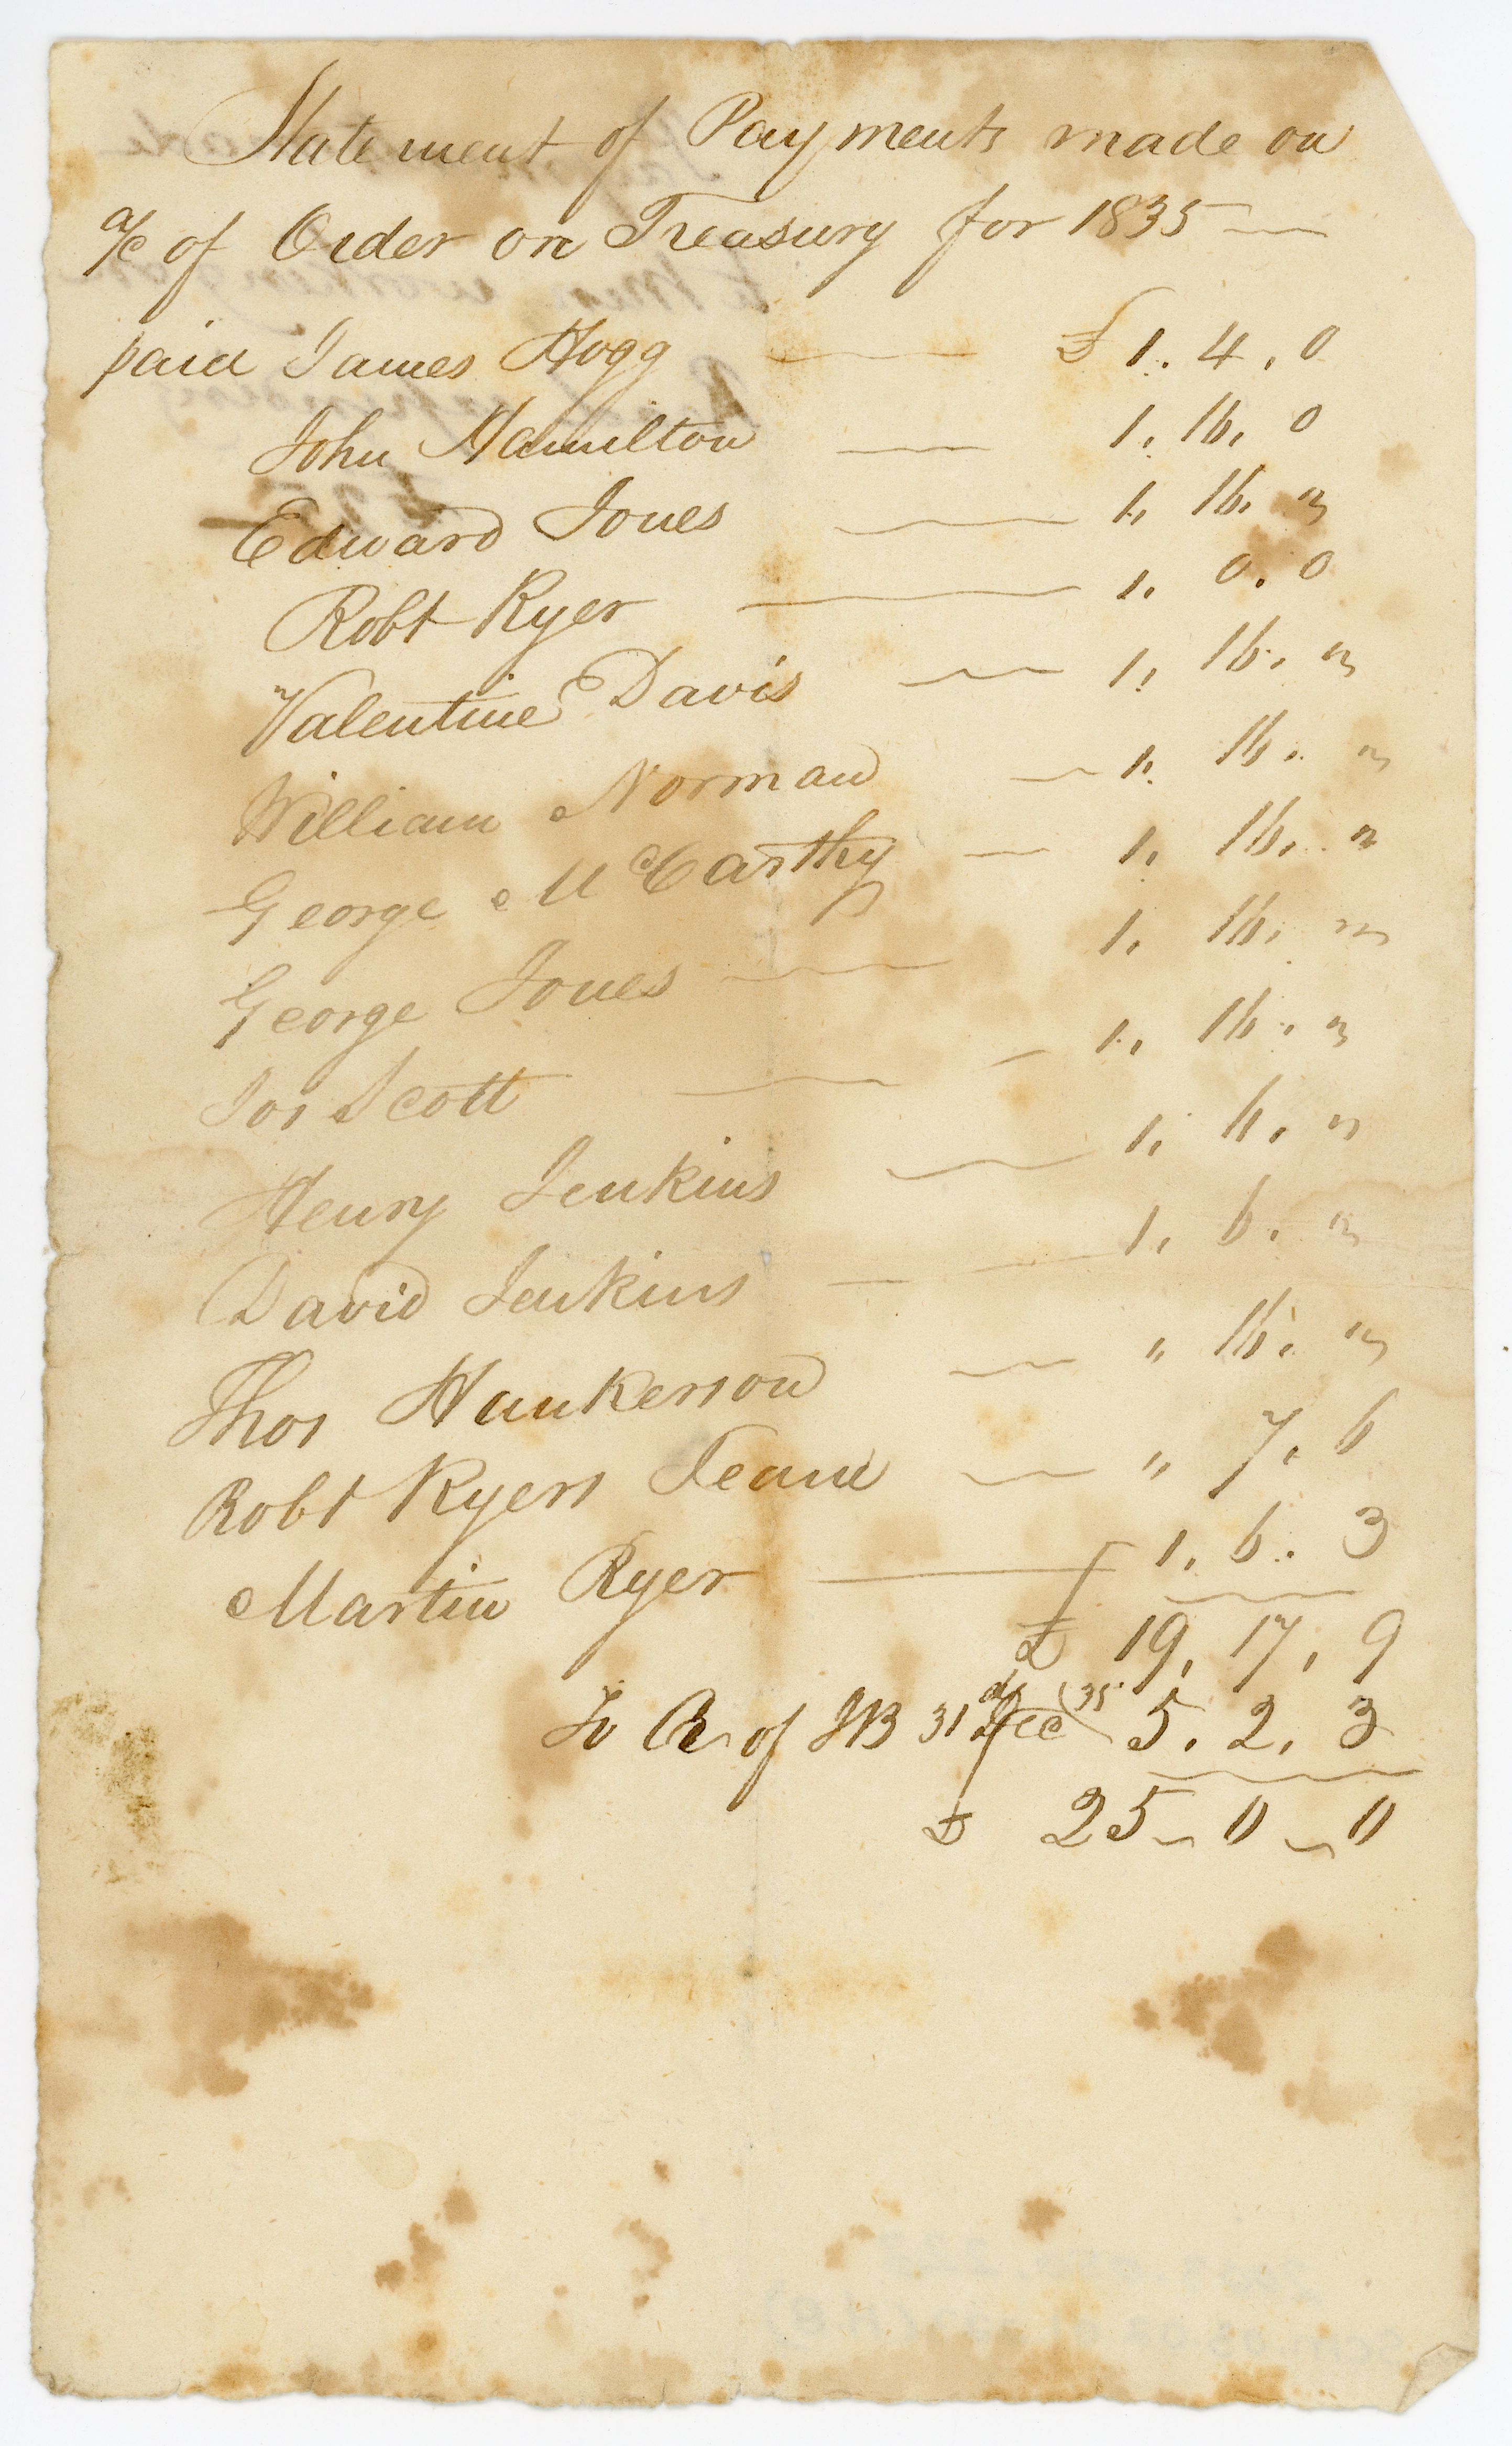 Statement of Payments made on
a/c of Order on Treasury for 1835 —
paid James Hogg — £ 1. 4. 0
John Hamilton — 1. 16. 0
Edward Jones — 1. 16. "
Robt Ryer — 1. 0. 0
Valentine Davis — 1. 16. "
William Norman — 1. 16. "
George McCarthy — 1. 16. "
George Jones — 1. 16. "
Jos Scott — 1. 16. "
Henry Jenkins — 1. 6. "
David Jenkins — 1. 6. "
Thos Hunkerson — " 16. "
Robt Ryers Team — " 7. 6
Martin Ryer — 1. 6. 3
£ 19. 17. 9
To of JB 31 Dec 35 5. 2. 3
£ 25 - 0 - 0